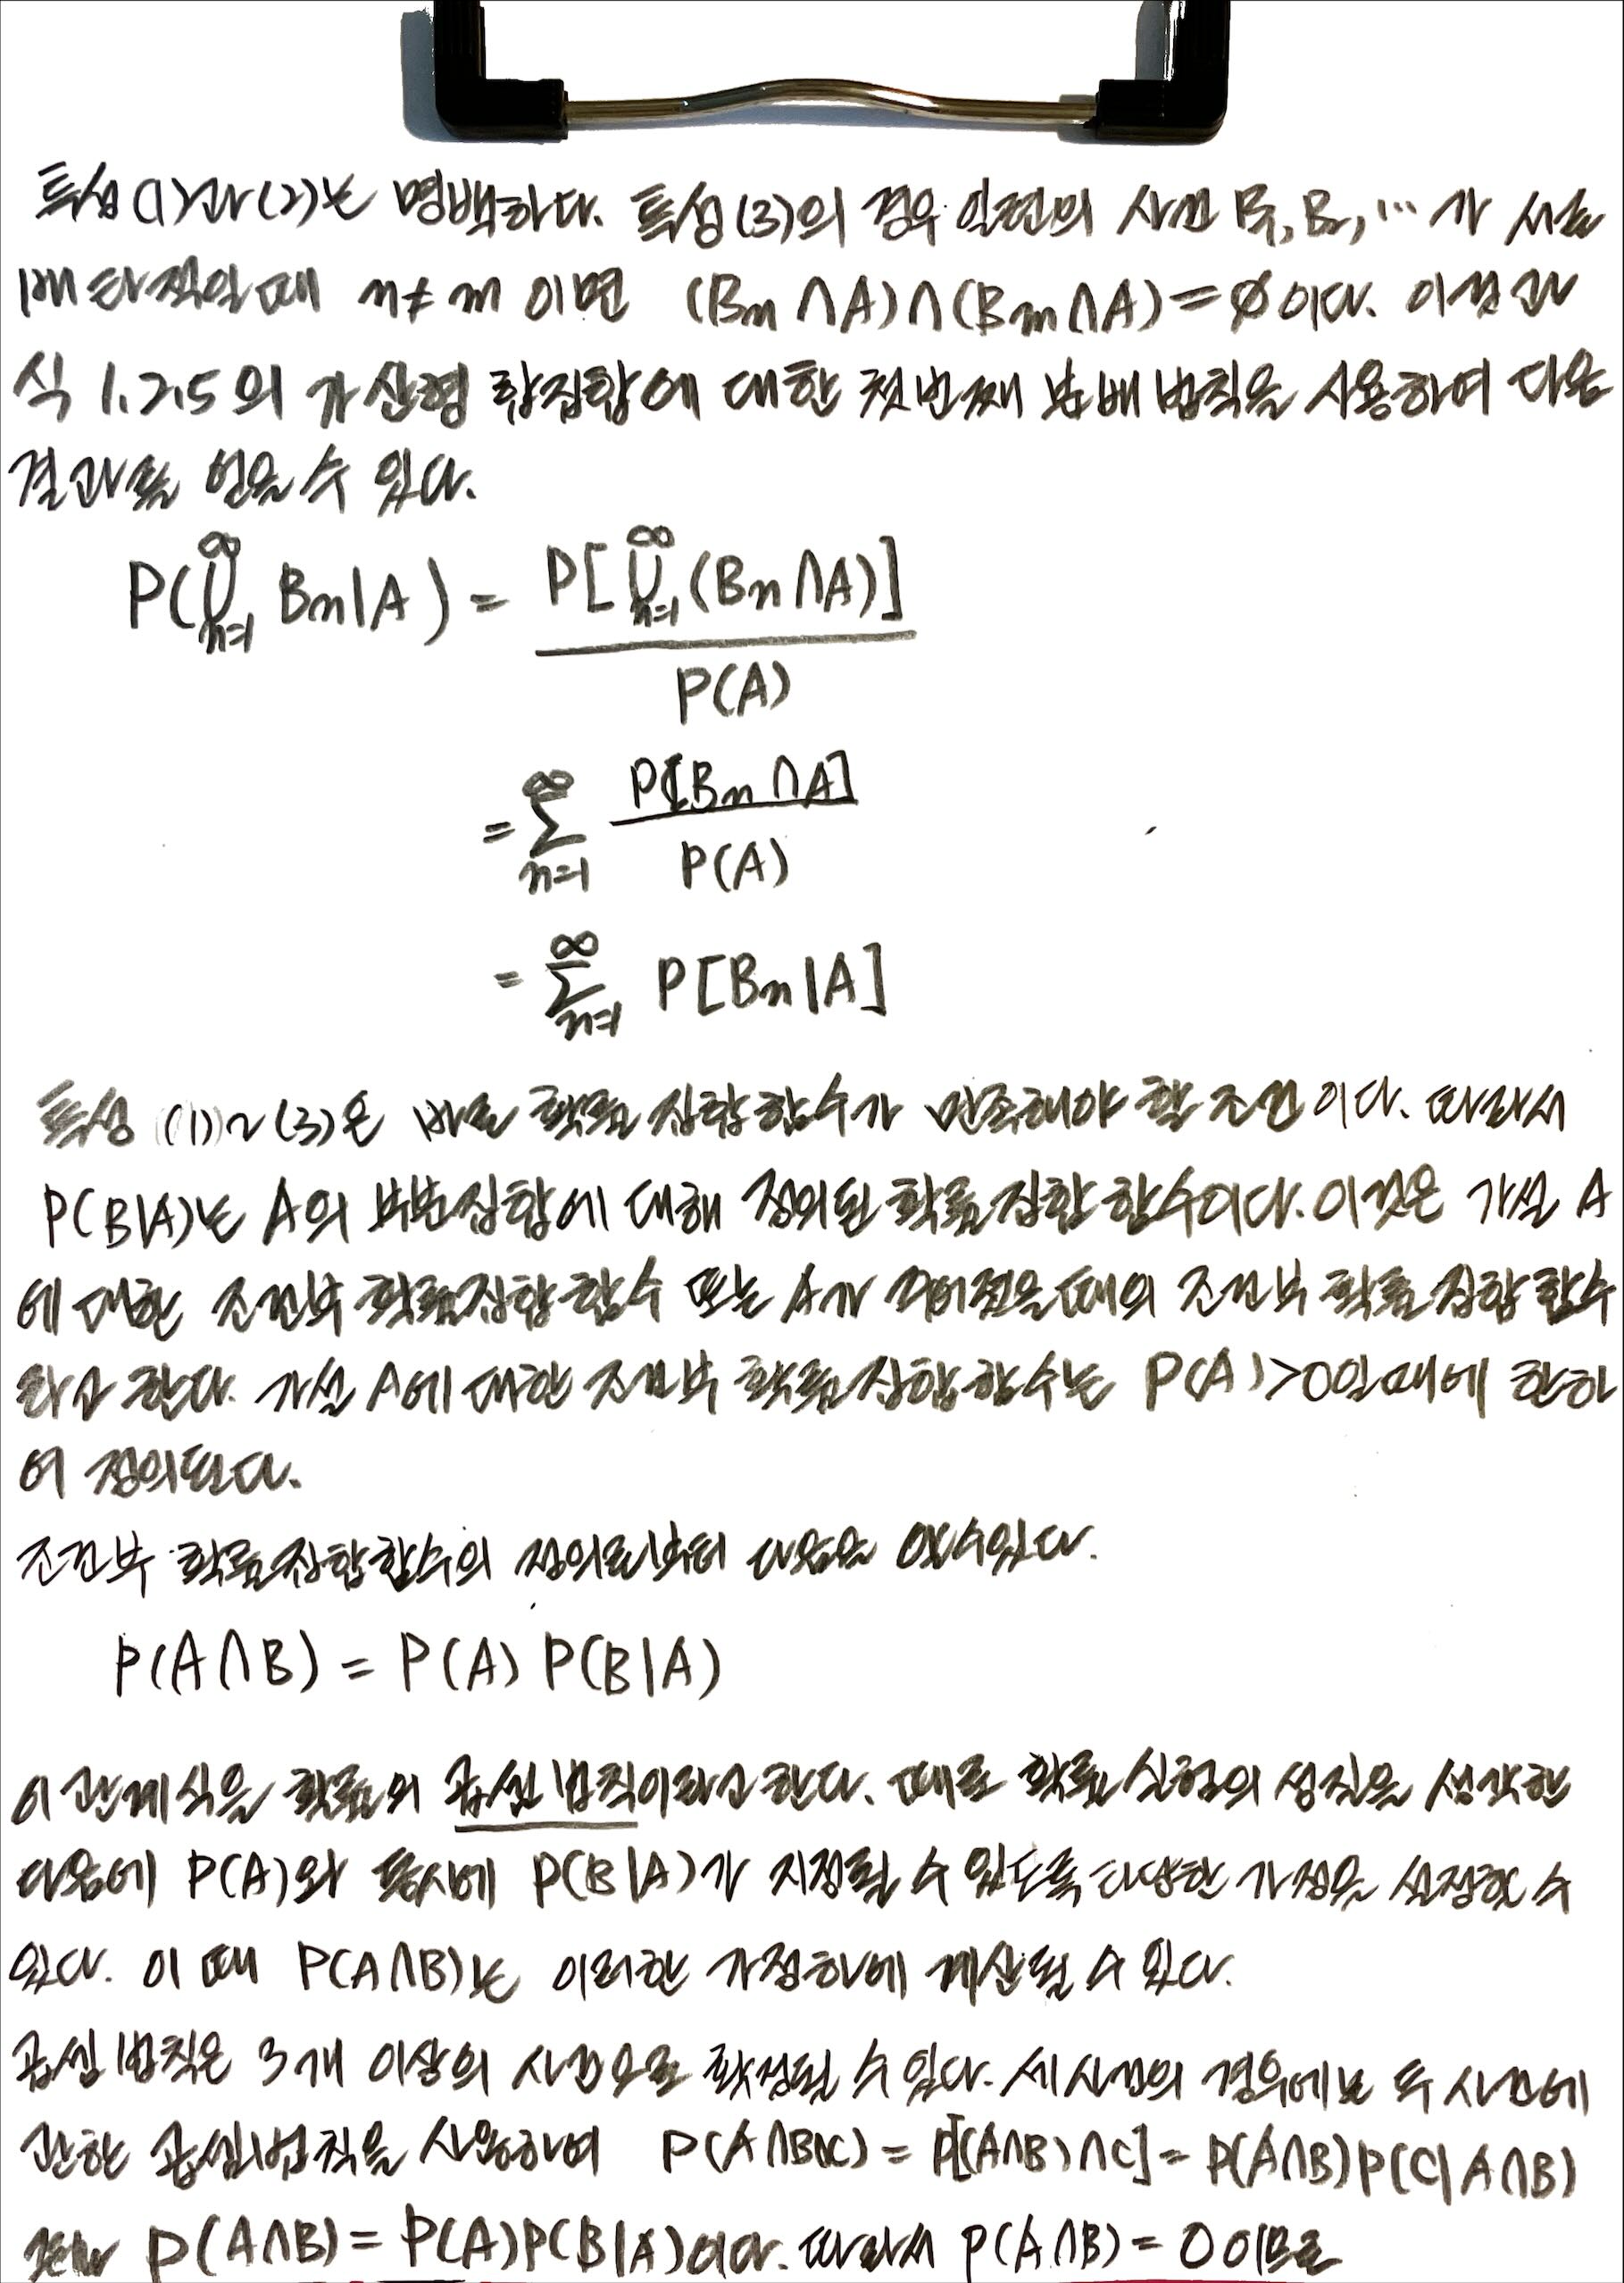 특성 (1)과 (2)는 명백하다. 특성 (3)의 경우 일련의 사건 B₁, B₂, ... 가 서로
배타적일 때 n ≠ m 이면 (Bn ∩ A) ∩ (Bm ∩ A) = ∅ 이다. 이것과
식 1.2.5 의 가산형 합집합에 대한 첫번째 분배 법칙을 사용하여 다음
결과를 얻을 수 있다.
P(⋃_{n=1}^{∞} Bn|A) = P[⋃_{n=1}^{∞} (Bn ∩ A)] / P(A)
= ∑_{n=1}^{∞} P[Bn ∩ A] / P(A)
= ∑_{n=1}^{∞} P[Bn|A]
특성 (1)~(3)은 바로 확률 집합 함수가 만족해야 할 조건 이다. 따라서
P(B|A)는 A의 부분집합에 대해 정의된 확률 집합 함수이다. 이것은 가설 A
에 대한 조건부 확률집합 함수 또는 A가 주어졌을 때의 조건부 확률 집합 함수
라고 한다. 가설 A에 대한 조건부 확률 집합 함수는 P(A) > 0일 때에 한하
여 정의된다.
조건부 확률집합함수의 정의로부터 다음을 알 수 있다.
P(A ∩ B) = P(A) P(B|A)
이 관계식을 확률의 곱셈 법칙이라고 한다. 때로 확률 실험의 성질을 생각한
다음에 P(A)와 동시에 P(B|A)가 지정될 수 있도록 다양한 가정을 설정할 수
있다. 이 때 P(A ∩ B)는 이러한 가정하에 계산될 수 있다.
곱셈 법칙은 3개 이상의 사건으로 확장될 수 있다. 세 사건의 경우에는 두 사건에
관한 곱셈법칙을 사용하여 P(A∩B∩C) = P[(A∩B)∩C] = P(A∩B)P(C|A∩B)
P(A∩B) = P(A)P(B|A)이다. 따라서 P(A∩B) = 0 이므로